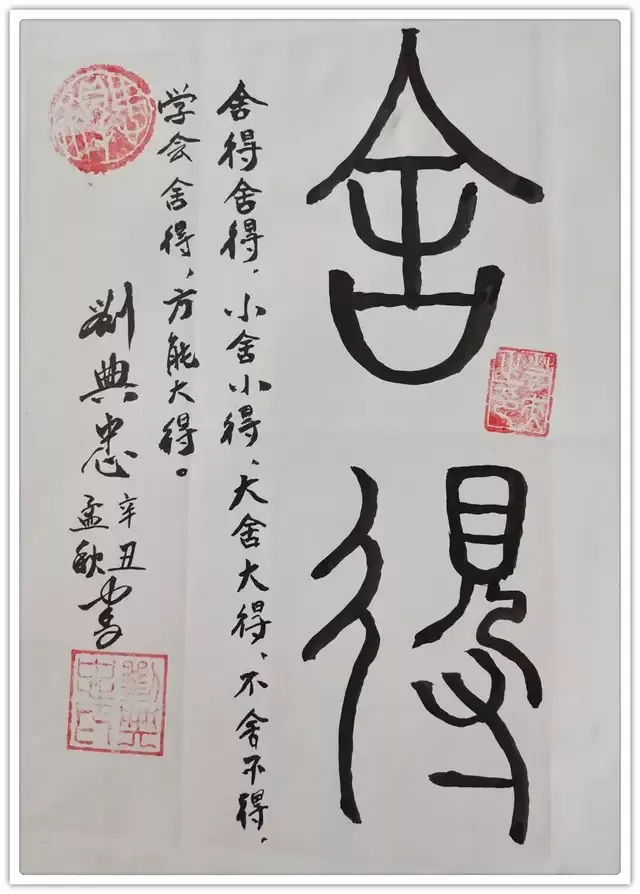 舍得
舍得舍得，小舍小得，大舍大得，不舍不得，
学会舍得，方能大得。
劉典忠
辛丑
孟秋書
劉典忠印